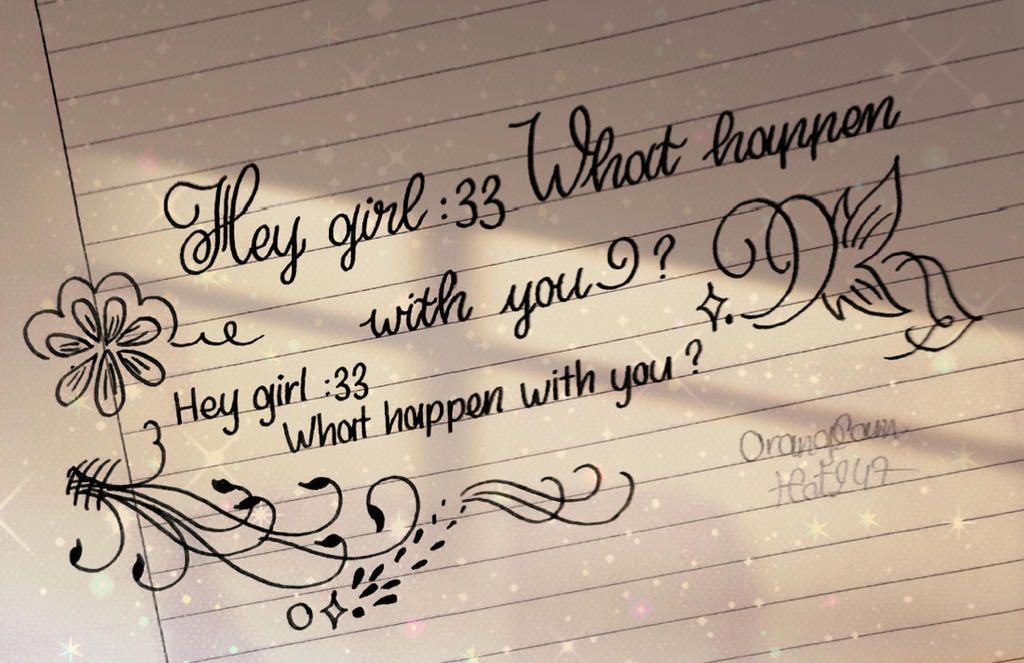 Hey girl :33 What happen
with you ?
Hey girl :33
What happen with you ?